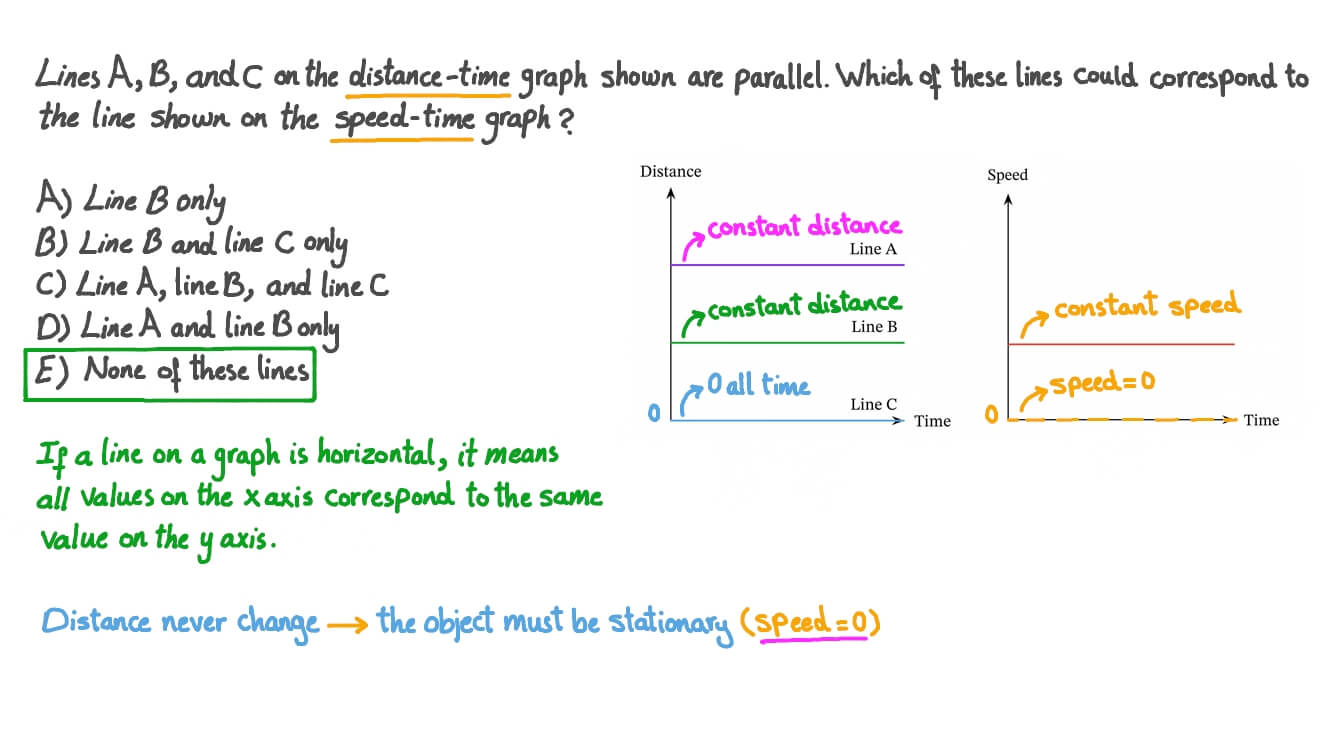 Lines A, B, and C on the distance-time graph shown are parallel. Which of these lines could correspond to
the line shown on the speed-time graph?
A) Line B only
B) Line B and line C only
C) Line A, line B, and line C
D) Line A and line B only
E) None of these lines
Distance
constant distance
Line A
constant distance
Line B
0 all time
Line C
0
Time
Speed
constant speed
speed=0
0
Time
If a line on a graph is horizontal, it means
all values on the x axis correspond to the same
value on the y axis.
Distance never change → the object must be stationary (speed=0)